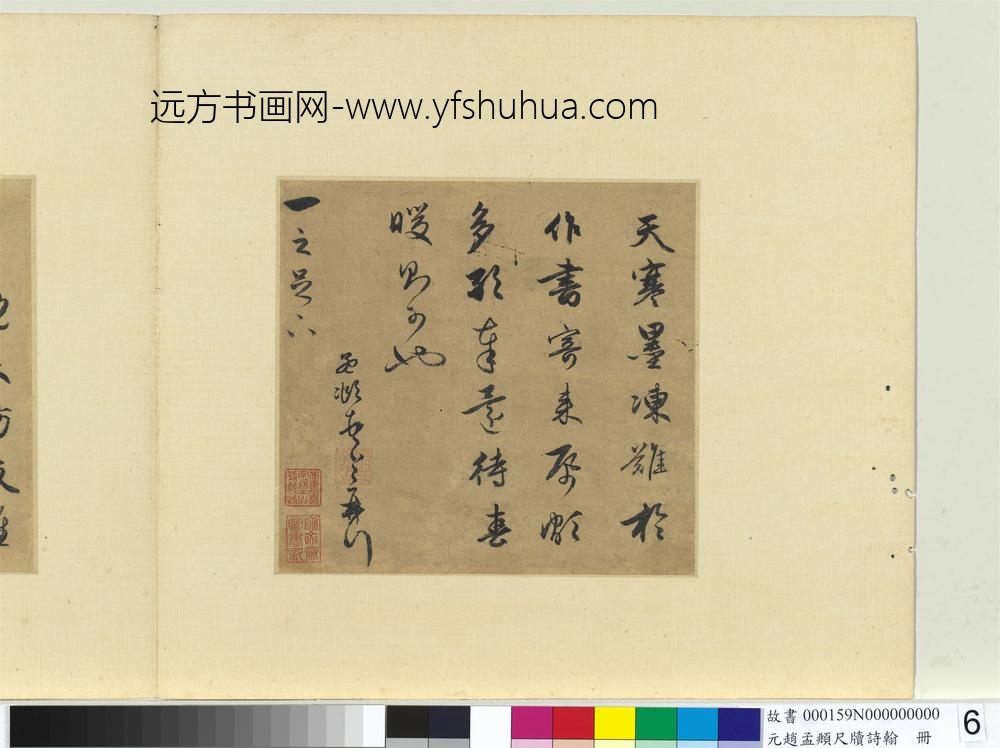 远方书画网-www.yfshuhua.com
天寒墨凍難於
作書寄来
多
暖則可也
奉還待春
一之足下
孟頫
故書 000159N000000000
元趙孟頫尺牘詩翰 冊
6